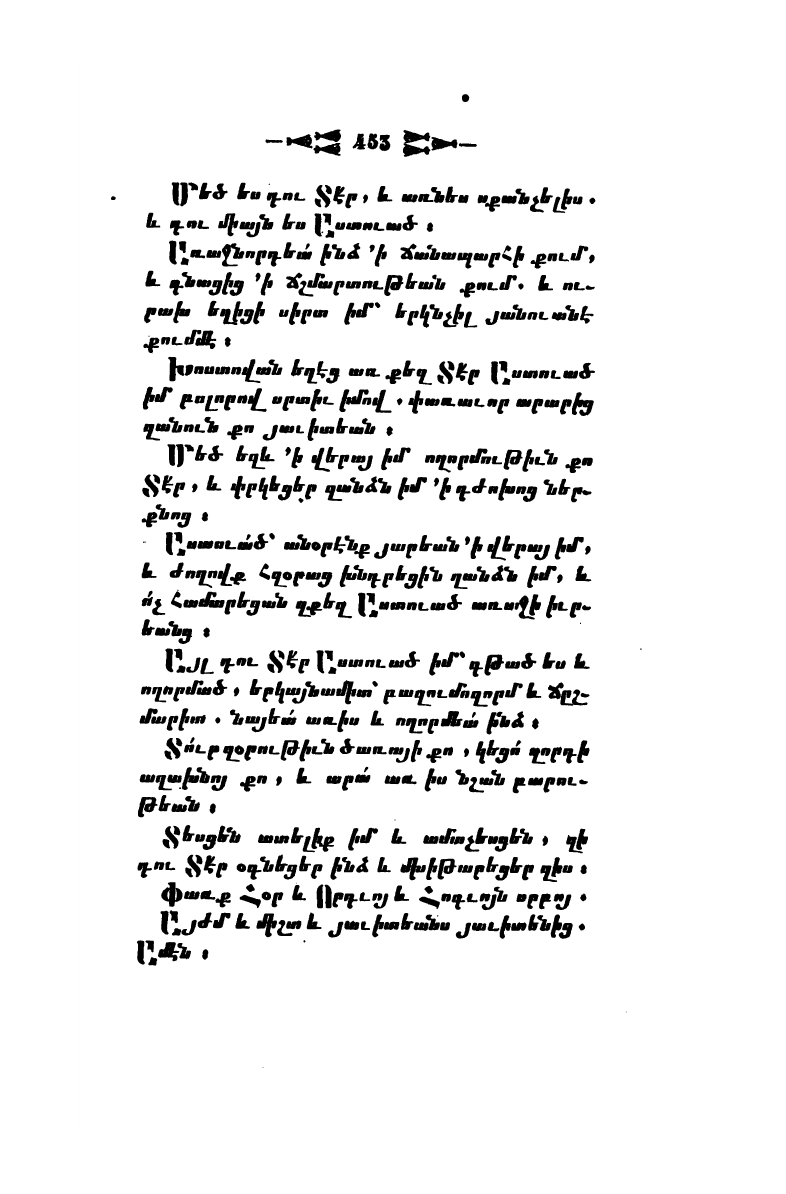 453
Մեծ ես դու Տէր, և առնես սքանչելիս.
և դու միայն ես Աստուած։
Առաջնորդեա՛ ինձ ՚ի ճանապարհի քում,
և գնացից ՚ի ճշմարտութեան քում. և ու-
րախ եղիցի սիրտ իմ՝ երկնչիլ յանուանէ
քումմէ։
Խոստովան եղէց առ քեզ Տէր Աստուած
իմ բոլորով սրտիւ իմով. փառաւոր արարից
զանուն քո յաւիտեան։
Մեծ եղև ՚ի վերայ իմ ողորմութիւն քո
Տէր, և փրկեցեր զանձն իմ ՚ի դժոխոց ներ-
քնոց։
Աստուա՛ծ՝ անօրէնք յարեան ՚ի վերայ իմ,
և ժողովք հզօրաց խնդրեցին զանձն իմ, և
ո՛չ համարեցան զքեզ Աստուած առաջի իւր-
եանց։
Այլ դու Տէր Աստուած իմ՝ գթած ես և
ողորմած, երկայնամիտ՝ բազումողորմ և ճըշ-
մարիտ. նայեա՛ առիս և ողորմեա՛ ինձ։
Տո՛ւր զօրութիւն ծառայի քո, կեցո՛ զորդի
աղախնոյ քո, և արա՛ առ իս նշան բարու-
թեան։
Տեսցեն ատելիք իմ և ամաչեսցեն, զի
դու Տէր օգնեցեր ինձ և մխիթարեցեր զիս։
Փառք Հօր և Որդւոյ և Հոգւոյն սրբոյ.
Այժմ և միշտ և յաւիտեանս յաւիտենից.
Ամէն։